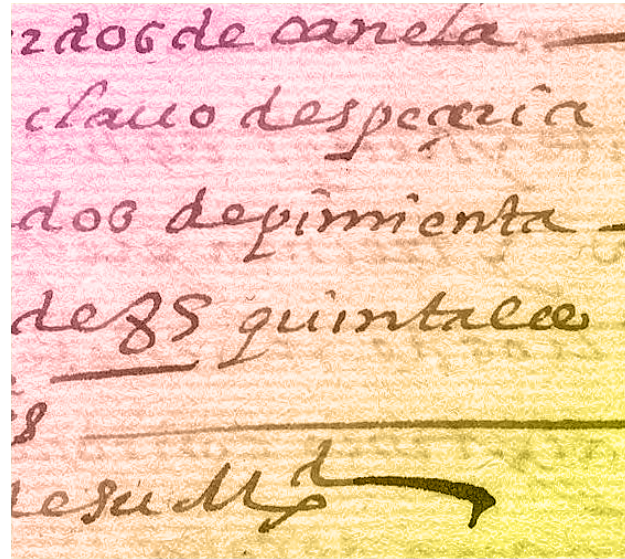 dos de canela
clauo despeçeria
dos de pimienta
de 85 quintales
de su M^d